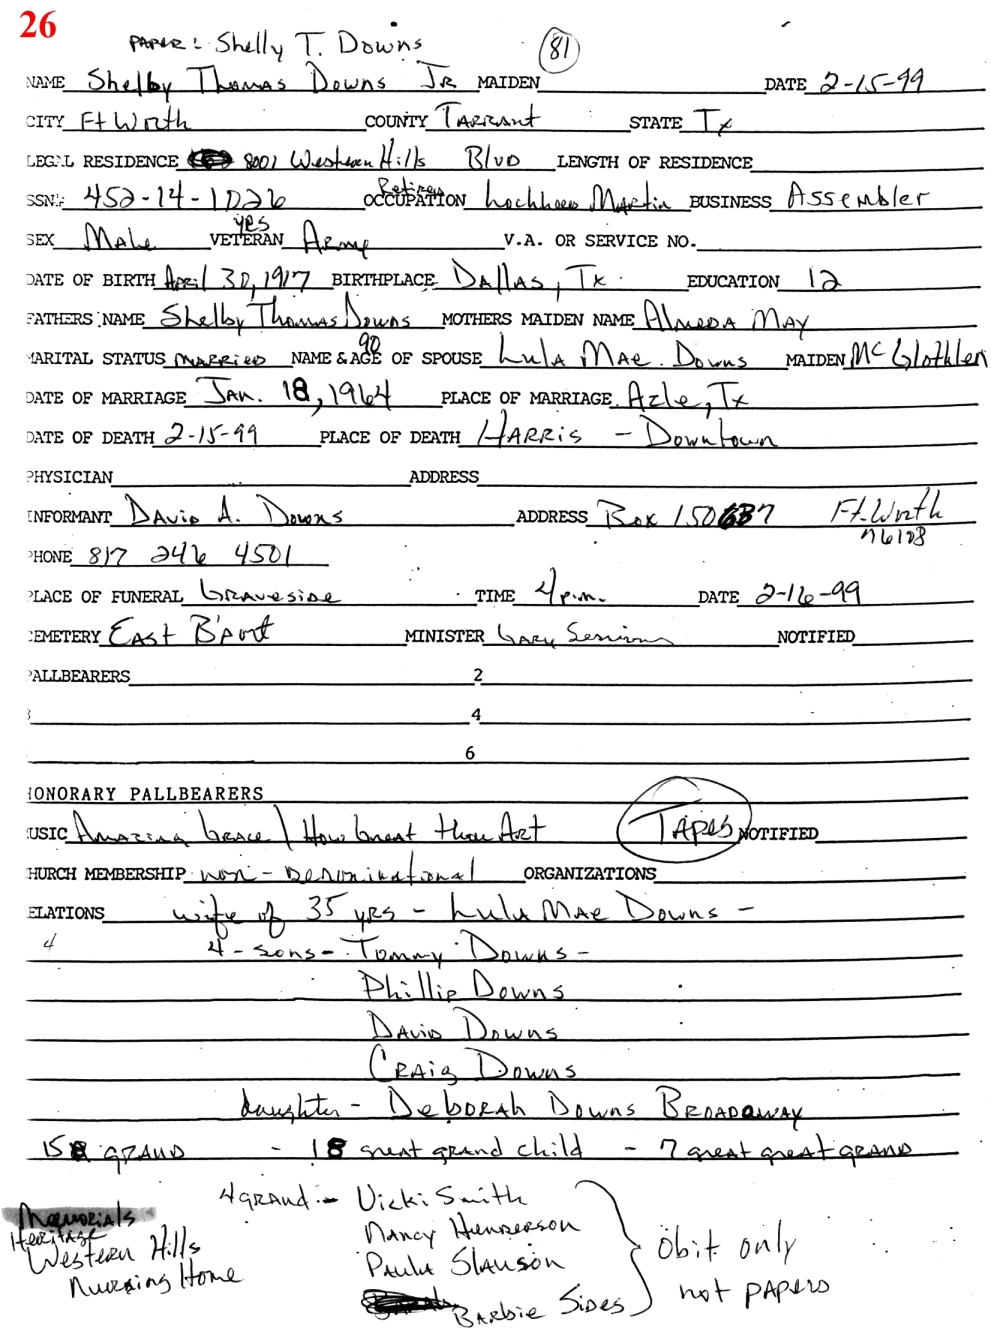 26
PAPER: Shelly T. Downs 81
NAME Shelby Thomas Downs JR MAIDEN DATE 2-15-99
CITY Ft Worth COUNTY TARRANT STATE Tx
LEGAL RESIDENCE 8001 Western Hills Blvd LENGTH OF RESIDENCE
SSN: 452-14-1026 OCCUPATION Retired Lockheed Martin BUSINESS Assembler
SEX Male VETERAN yes Army V.A. OR SERVICE NO.
DATE OF BIRTH April 30, 1917 BIRTHPLACE Dallas, Tx. EDUCATION 12
FATHERS NAME Shelby Thomas Downs MOTHERS MAIDEN NAME Almeda May
MARITAL STATUS MARRIED NAME & AGE OF SPOUSE 90 Lula Mae Downs MAIDEN McGlothlen
DATE OF MARRIAGE Jan. 18, 1964 PLACE OF MARRIAGE Azle, Tx
DATE OF DEATH 2-15-99 PLACE OF DEATH HARRIS - Downtown
PHYSICIAN ADDRESS
INFORMANT David A. Downs ADDRESS Box 150687 Ft. Worth 76108
PHONE 817 246 4501
PLACE OF FUNERAL Graveside TIME 4 p.m. DATE 2-16-99
CEMETERY East B'port MINISTER Gary Sessions NOTIFIED
PALLBEARERS 2
3 4
6
HONORARY PALLBEARERS
MUSIC Amazing Grace / How Great Thou Art TAPES NOTIFIED
CHURCH MEMBERSHIP non-Denominational ORGANIZATIONS
RELATIONS wife of 35 yrs - Lula Mae Downs -
4 4-sons- Tommy Downs -
Phillip Downs
David Downs
Craig Downs
daughter - Deborah Downs Broadaway
15 GRAND - 18 great grand child - 7 great great grand
4 GRAND - Vicki Smith
Nancy Henderson
Paula Slauson
Barbie Sides
Obit only
not PAPERS
Memorials
Heritage
Western Hills
Nursing Home